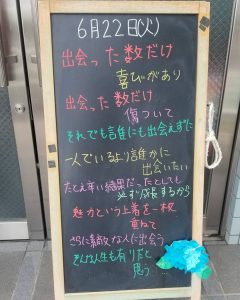 6月22日(火)
出会った数だけ
喜びがあり
出会った数だけ
傷ついて
それでも誰にも出会えずに
一人でいるより誰かに
出会いたい
たとえ辛い結果だったとしても
必ず成長するから
魅力という上着を一枚
重ねて
さらに素敵な人に出会う
そんな人生も有りだと
思う